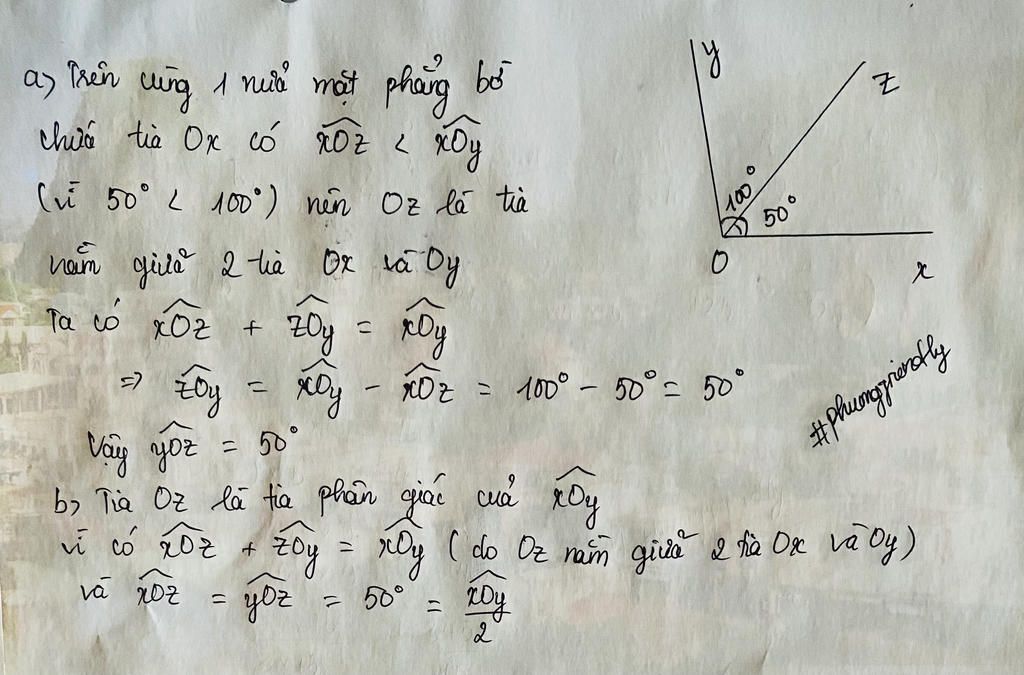 a) Trên cùng 1 nửa mặt phẳng bờ
chứa tia Ox có xOz < xOy
(vì 50° < 100°) nên Oz là tia
nằm giữa 2 tia Ox và Oy
Ta có xOz + zOy = xOy
=> zOy = xOy - xOz = 100° - 50° = 50°
Vậy yOz = 50°
b) Tia Oz là tia phân giác của xOy
vì có xOz + zOy = xOy (do Oz nằm giữa 2 tia Ox và Oy)
và xOz = yOz = 50° = xOy/2
y
z
100°
50°
O
x
#phuongfriendfly